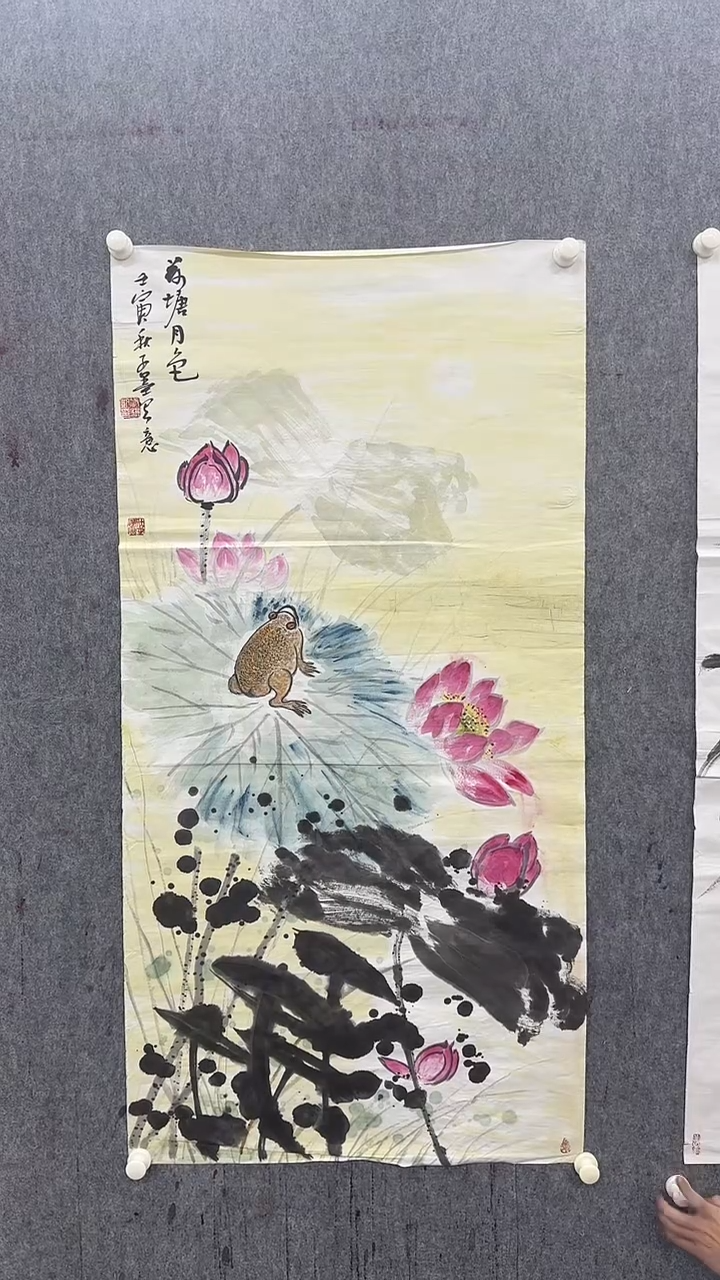 荷塘月色
壬寅秋子墨写意